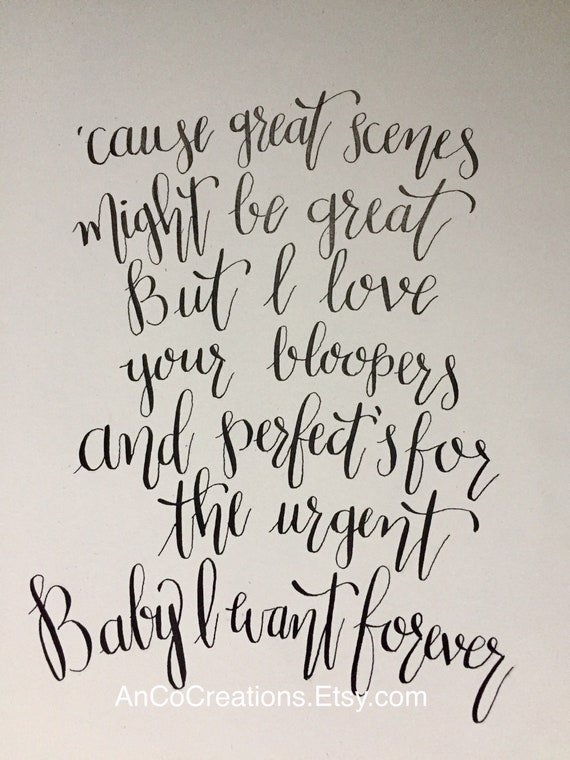 'cause great scenes
might be great
But I love
your bloopers
and perfect's for
the urgent
Baby I want forever
AnCoCreations.Etsy.com